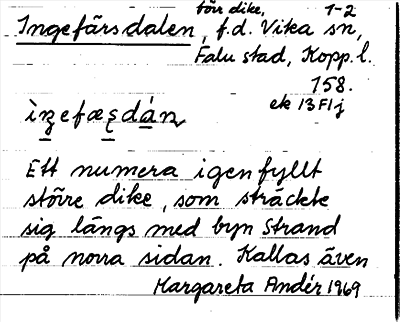 törr dike, 1-2
Ingefärsdalen, f.d. Vika sn,
Falu stad, Kopp.l.
158.
ek 13F1j
Ett numera igenfyllt
större dike, som sträckte
sig längs med byn Strand
på norra sidan. Kallas även
Margareta Andér 1969